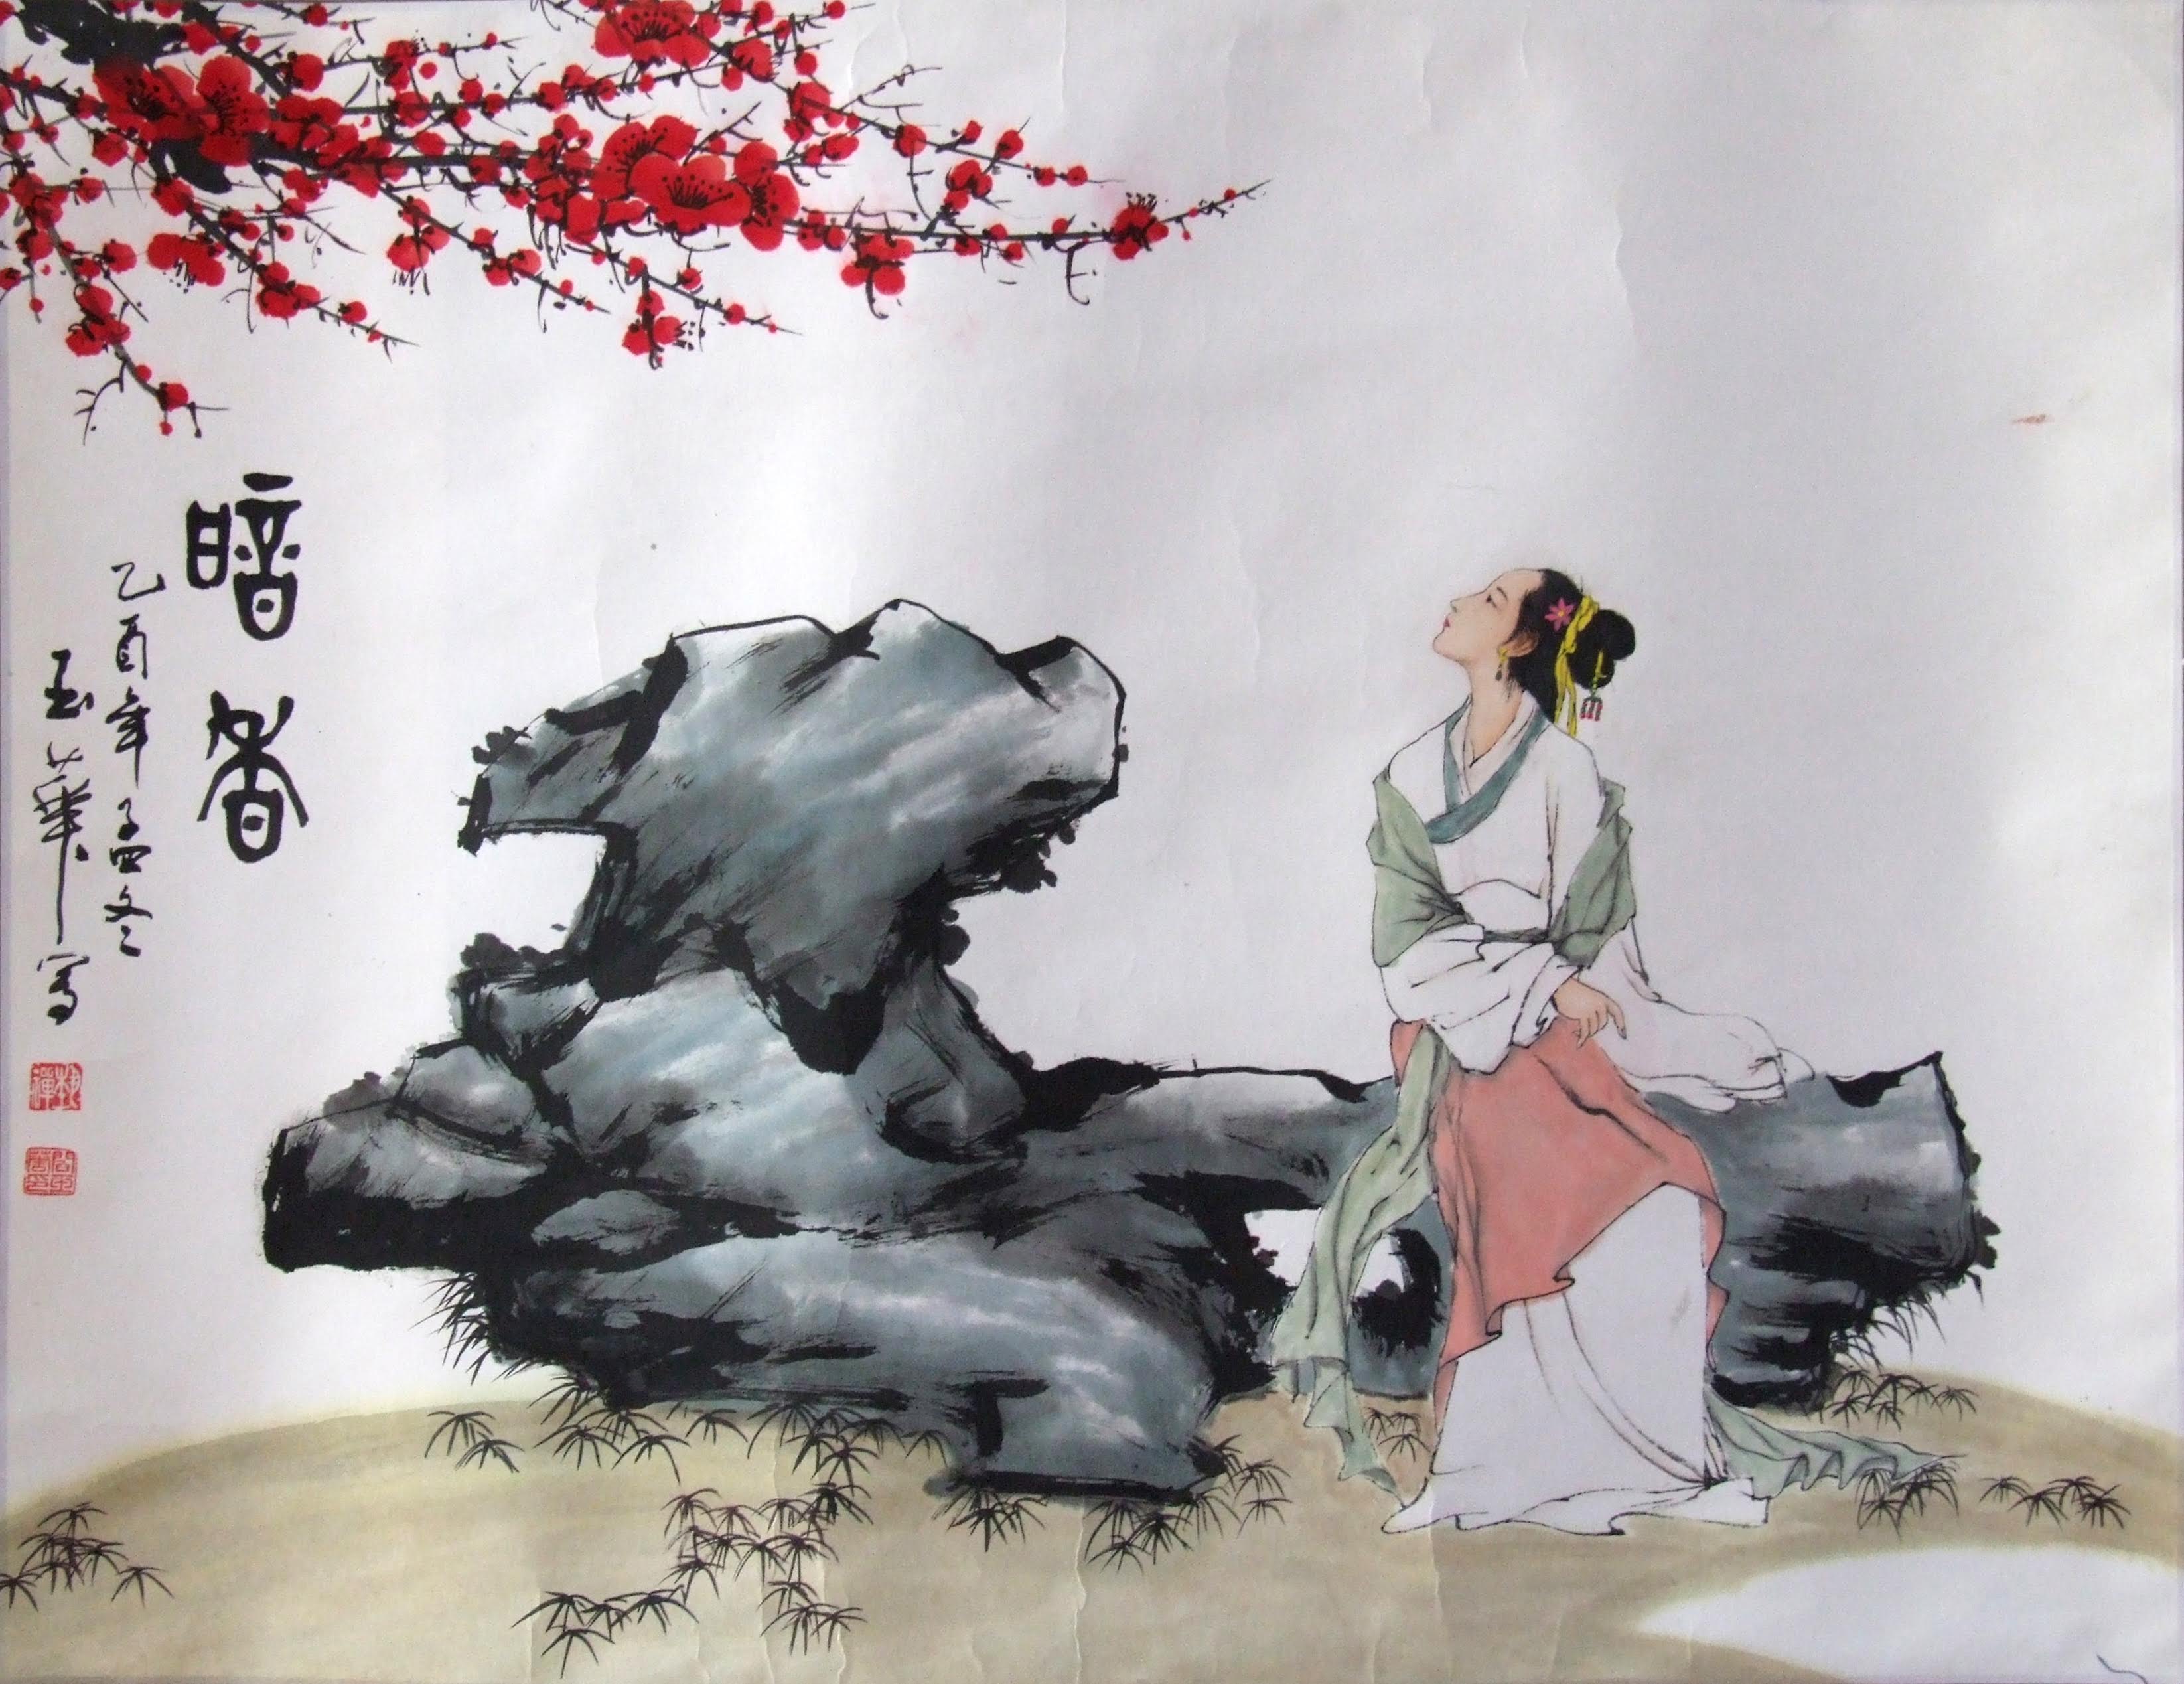 暗香
乙酉年孟冬
玉華寫